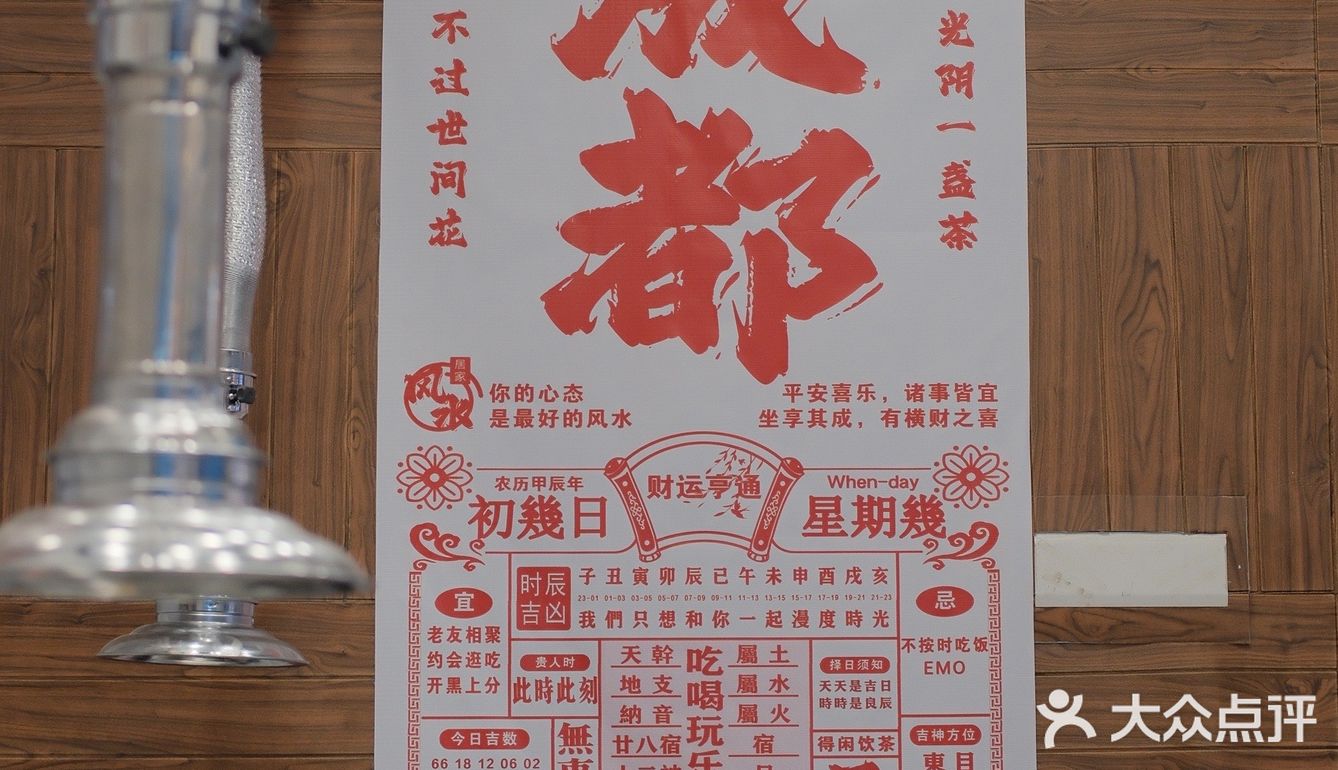 不过世间花
光阴一盏茶
都
居家
风水
你的心态
是最好的风水
平安喜乐，诸事皆宜
坐享其成，有横财之喜
农历甲辰年
初幾日
财运亨通
When-day
星期幾
宜
老友相聚
约会逛吃
开黑上分
时辰
吉凶
子丑寅卯辰已午未申酉戌亥
23-01 01-03 03-05 05-07 07-09 09-11 11-13 13-15 15-17 17-19 19-21 21-23
我們只想和你一起漫度時光
忌
不按时吃饭
EMO
贵人时
此時此刻
天幹
地支
納音
廿八宿
吃喝玩乐
屬土
屬水
屬火
宿
择日须知
天天是吉日
時時是良辰
得闲饮茶
今日吉数
66 18 12 06 02
無
吉神方位
大众点评